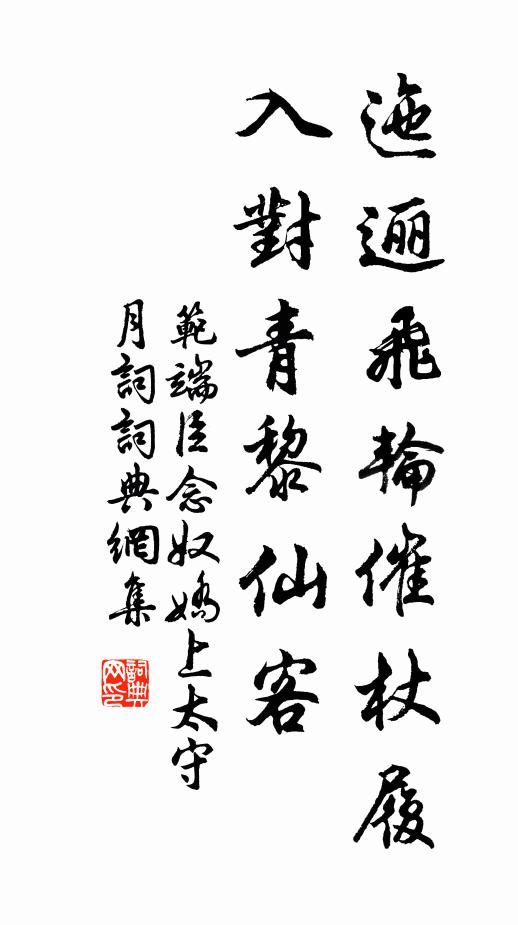 迤逦飛輪催杖履
入對青黎仙客
範端臣念奴嬌上太守
月詞詞典網集
詞典网印